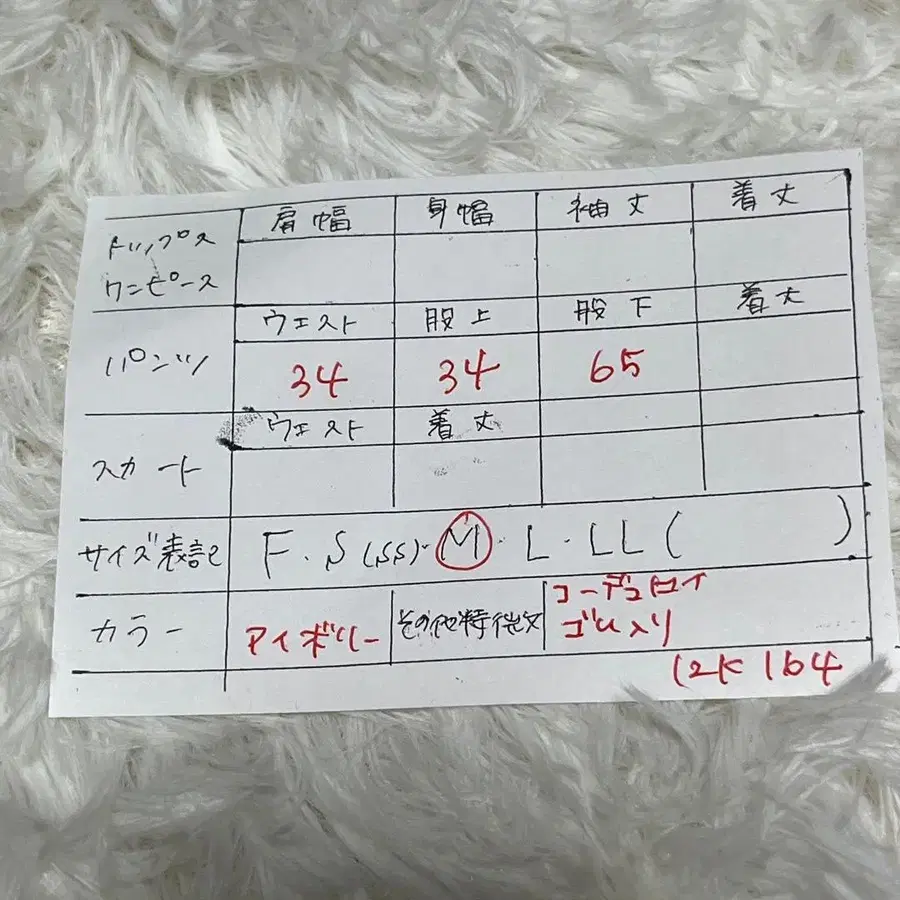 肩幅 身幅 袖丈 着丈
トップス
ワンピース
ウエスト 股上 股下 着丈
パンツ 34 34 65
ウエスト 着丈
スカート
サイズ表記 F・S(SS)・M・L・LL( )
カラー アイボリー その他特徴 コーデュロイ
ゴム入り
12K 164